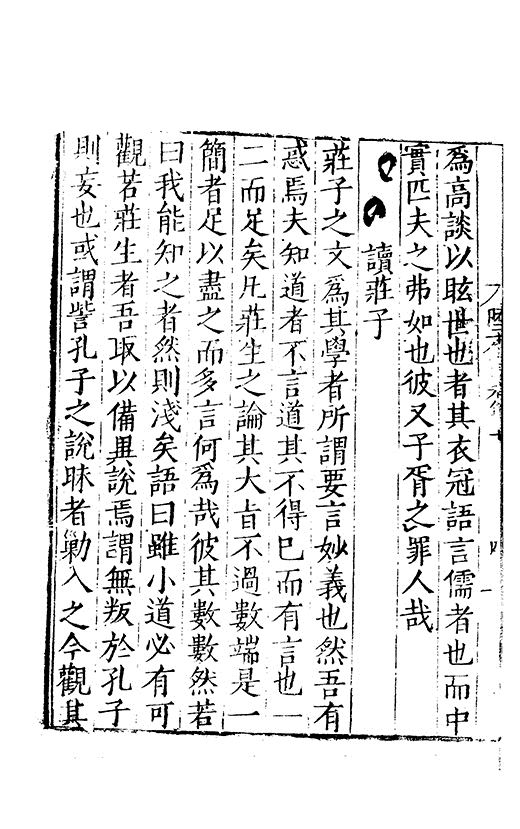 爲高談以眩世也者其衣冠語言儒者也而中
實匹夫之弗如也彼又子胥之罪人哉
讀莊子
莊子之文爲其學者所謂要言妙義也然吾有
惑焉夫知道者不言道其不得已而有言也一
二而足矣凡莊生之論其大旨不過數端是一
簡者足以盡之而多言何爲哉彼其數數然若
曰我能知之者然則淺矣語曰雖小道必有可
觀若莊生者吾取以備異說焉謂無叛於孔子
則妄也或謂訾孔子之說昧者勦入之今觀其